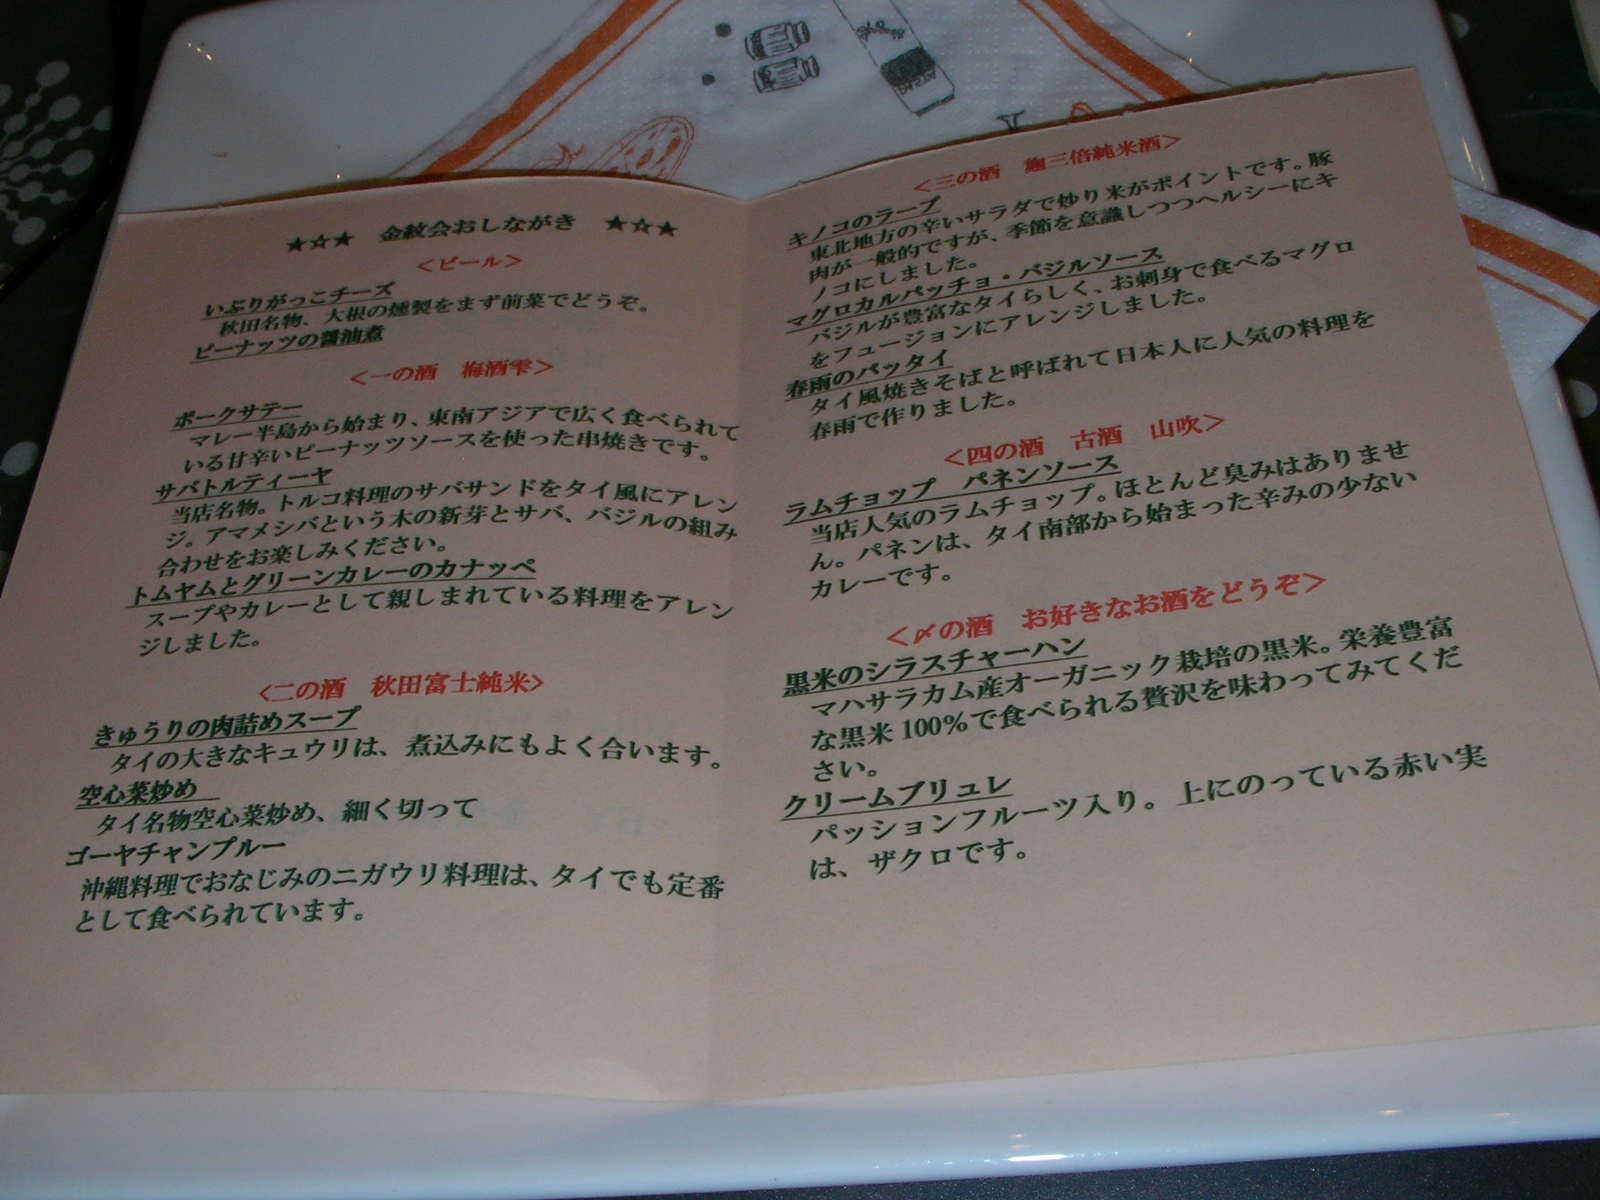 ★☆★ 金紋会おしながき ★☆★
＜ビール＞
いぶりがっこチーズ
秋田名物、大根の燻製をまず前菜でどうぞ。
ピーナッツの醤油煮
＜一の酒 梅酒雫＞
ポークサテー
マレー半島から始まり、東南アジアで広く食べられて
いる甘辛いピーナッツソースを使った串焼きです。
サバトルティーヤ
当店名物。トルコ料理のサバサンドをタイ風にアレン
ジ。アマメシバという木の新芽とサバ、バジルの組み
合わせをお楽しみください。
トムヤムとグリーンカレーのカナッペ
スープやカレーとして親しまれている料理をアレン
ジしました。
＜二の酒 秋田富士純米＞
きゅうりの肉詰めスープ
タイの大きなキュウリは、煮込みにもよく合います。
空心菜炒め
タイ名物空心菜炒め、細く切って
ゴーヤチャンプルー
沖縄料理でおなじみのニガウリ料理は、タイでも定番
として食べられています。
＜三の酒 麹三倍純米酒＞
キノコのラープ
東北地方の辛いサラダで炒り米がポイントです。豚
肉が一般的ですが、季節を意識しつつヘルシーにキ
ノコにしました。
マグロカルパッチョ・バジルソース
バジルが豊富なタイらしく、お刺身で食べるマグロ
をフュージョンにアレンジしました。
春雨のパッタイ
タイ風焼きそばと呼ばれて日本人に人気の料理を
春雨で作りました。
＜四の酒 古酒 山吹＞
ラムチョップ パネンソース
当店人気のラムチョップ。ほとんど臭みはありませ
ん。パネンは、タイ南部から始まった辛みの少ない
カレーです。
＜〆の酒 お好きなお酒をどうぞ＞
黒米のシラスチャーハン
マハサラカム産オーガニック栽培の黒米。栄養豊富
な黒米100%で食べられる贅沢を味わってみてくだ
さい。
クリームブリュレ
パッションフルーツ入り。上にのっている赤い実
は、ザクロです。